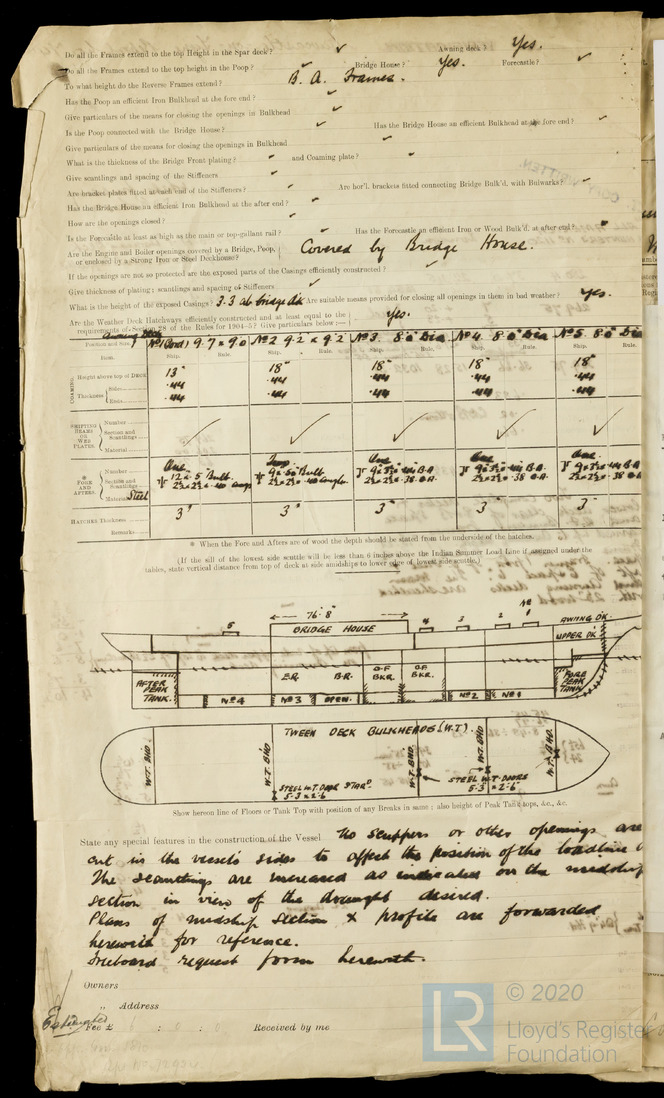 Do all the Frames extend to the top Height in the Spar deck? ✓ Awning deck Yes.
Do all the Frames extend to the top height in the Poop? ✓ Bridge House? Yes. Forecastle? ✓
To what height do the Reverse Frames extend? B. A. Frames.
Has the Poop an efficient Iron Bulkhead at the fore end? ✓
Give particulars of the means for closing the openings in Bulkhead
Is the Poop connected with the Bridge House? ✓ Has the Bridge House an efficient Bulkhead at the fore end? ✓
Give particulars of the means for closing the openings in Bulkhead ✓
What is the thickness of the Bridge Front plating? ✓ and Coaming plate? ✓
Give scantlings and spacing of the Stiffeners ✓
Are bracket plates fitted at each end of the Stiffeners? ✓ Are hor'l. brackets fitted connecting Bridge Bulk'd. with Bulwarks? ✓
Has the Bridge House an efficient Iron Bulkhead at the after end? ✓
How are the openings closed? ✓
Is the Forecastle at least as high as the main or top-gallant rail? ✓ Has the Forecastle an efficient Iron or Wood Bulk'd. at after end? ✓
Are the Engine and Boiler openings covered by a Bridge, Poop, or enclosed by a Strong Iron or Steel Deckhouse? Covered by Bridge House.
If the openings are not so protected are the exposed parts of the Casings efficiently constructed? ✓
Give thickness of plating; scantlings and spacing of Stiffeners ✓
What is the height of the exposed Casings? 3.3 ab bridge dk Are suitable means provided for closing all openings in them in bad weather? Yes.
Are the Weather Deck Hatchways efficiently constructed and at least equal to the
requirements of Section 28 of the Rules for 1904-5? Give particulars below:— Yes.
Awning Deck
Position and Size Nº1 9.7 x 9.0 Nº2 9.2 x 9.2 Nº3. 8.0 Dia Nº4. 8.0 Dia Nº5. 8.0 Dia
Item. Ship. Rule. Ship. Rule. Ship. Rule. Ship. Rule. Ship.
COAMING Height above top of DECK 13" 18" 18" 18" 18"
Thickness Sides .44 .44 .44 .44 .44
Ends .44 .44 .44 .44 .44
SHIFTING BEAMS OR WEB PLATES. Number
Section and Scantlings ✓ ✓ ✓ ✓ ✓
Material
* FORE AND AFTERS. Number One Two One One One
Section and Scantlings 12 x 5 Bulb 9 x 5 Bulb 9 x 3½ x .44 B.A 9 x 3½ x .44 B.A. 9 x 3½ x .44 B.A
Material Steel
HATCHES Thickness 3" 3" 3" 3" 3"
Remarks
* When the Fore and Afters are of wood the depth should be stated from the underside of the hatches.
(If the sill of the lowest side scuttle will be less than 6 inches above the Indian Summer Load Line if assigned under the
tables, state vertical distance from top of deck at side amidships to lower edge of lowest side scuttle.)
76'·8"
5 BRIDGE HOUSE 4 3 2 Nº 1 AWNING DK
UPPER DK
AFTER PEAK TANK. E.R. B.R. O.F BKR. O.F BKR. FORE PEAK TANK
Nº4 Nº3 OPEN. Nº2 Nº1
TWEEN DECK BULKHEADS (W.T).
W.T. BHD W.T. BHD W.T. BHD W.T. BHD W.T. BHD.
STEEL W.T. DOOR STARD
5-3 x 2-6
STEEL W.T. DOORS
5-3 x 2-6
Show hereon line of Floors or Tank Top with position of any Breaks in same; also height of Peak Tank tops, &c., &c.
State any special features in the construction of the Vessel No scuppers or other openings are
cut in the vessels sides to affect the position of the loadline
The scantlings are increased as indicated on the midship
section in view of the draught desired.
Plans of midship section & profile are forwarded
herewith for reference.
Freeboard request form herewith.
Owners
„ Address
Estimated Fee £ 6 : 0 : 0 Received by me
LR © 2020
Lloyd's Register
Foundation